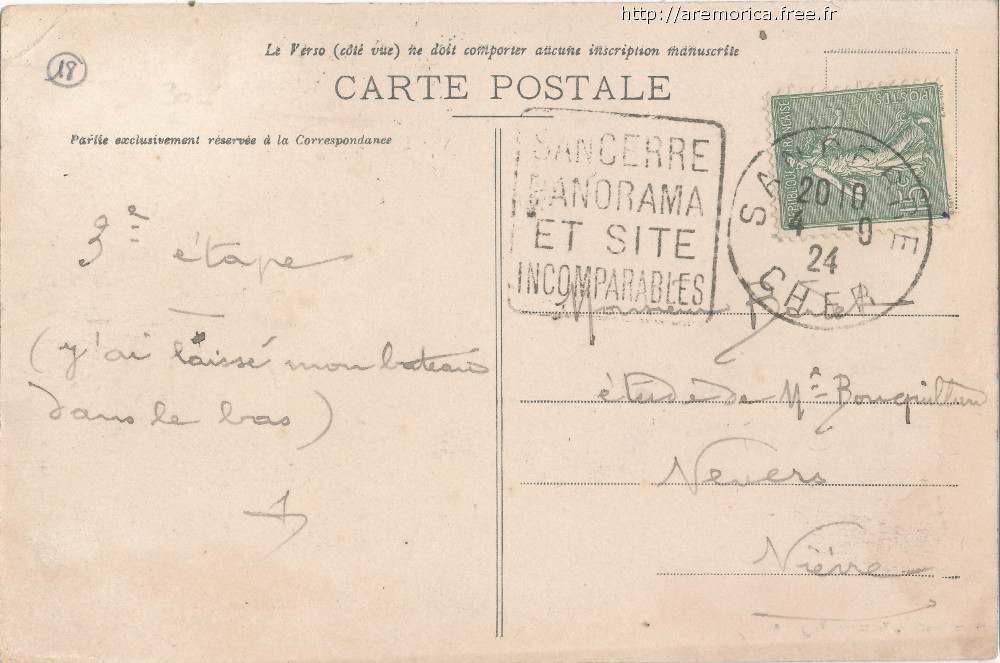 http://aremorica.free.fr
Le Verso (côté vue) ne doit comporter aucune inscription manuscrite
18
CARTE POSTALE
Partie exclusivement réservée à la Correspondance
SANCERRE
PANORAMA
ET SITE
INCOMPARABLES
REPUBLIQUE FRANÇAISE
POSTES
15c
SANCERRE
20 10
4 -9
24
CHER
3e étape
(y'ai laissé mon bateau
dans le bas)
Monsieur
étude de Me
Nevers
Nièvre